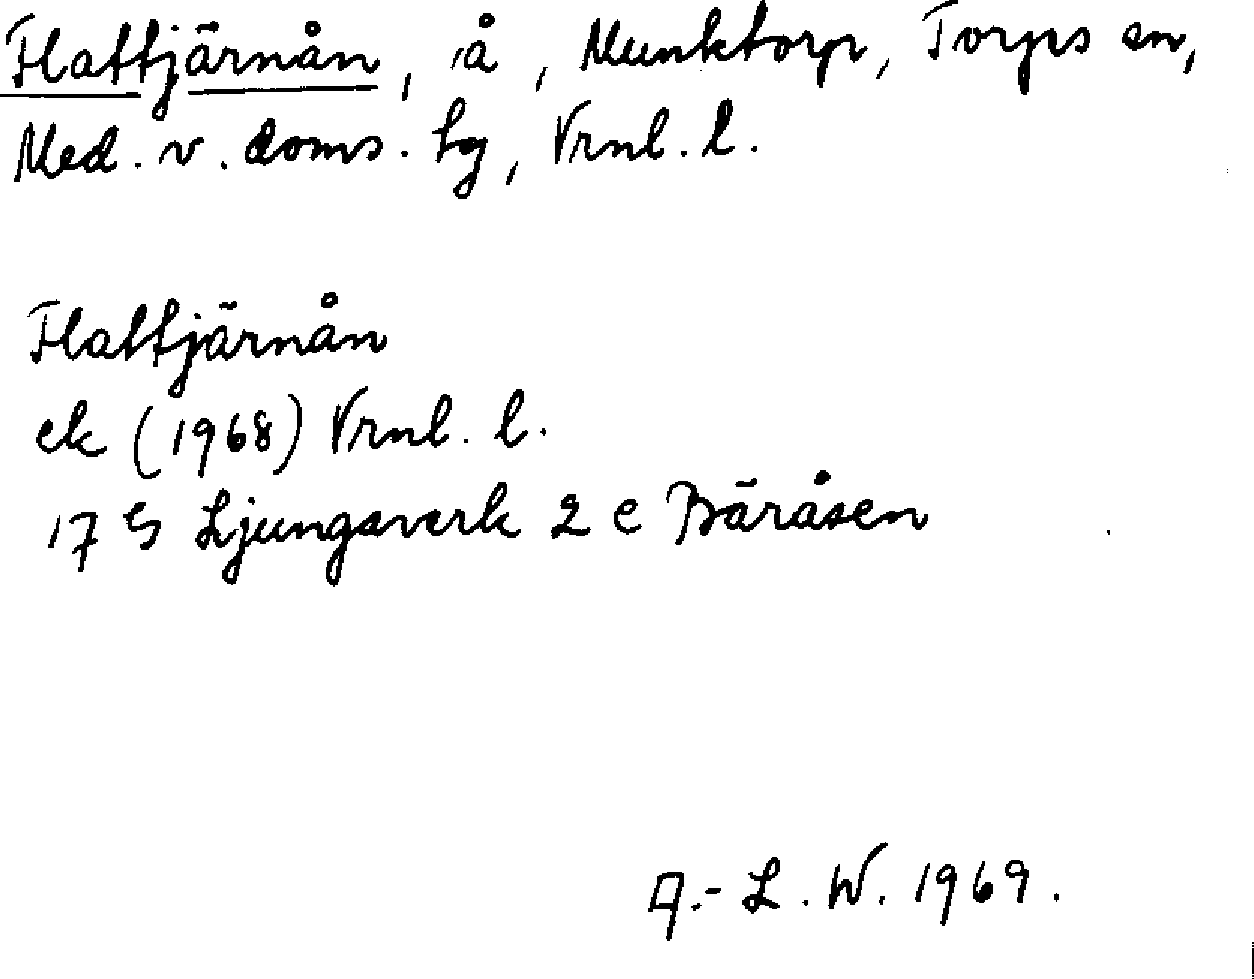 Flattjärnån, å, Munktorp, Torps sn,
Med. v. doms. hg, Vrnl. l.
Flattjärnån
ek (1968) Vrnl. l.
17 G Ljungaverk 2 e Bäråsen
A.-L. W. 1969.